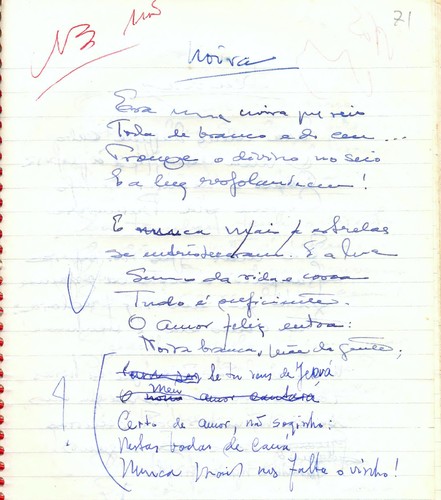 NB não
71
Noiva
Era uma noiva que veio
Toda de branco e do ceu...
Trouxe o divino no seio
E a luz resplandeceu!
E nunca mais as estrelas
se entristeceram. E a lua
da vida e
Tudo é suficiente.
O amor feliz entoa:
Noiva branca, mãe de gente,
Se tu vens de Jeová
O meu amor cantará
Certo de amor, não sozinho:
Nestas bodas de Caná
Nunca mais nos falta o vinho!